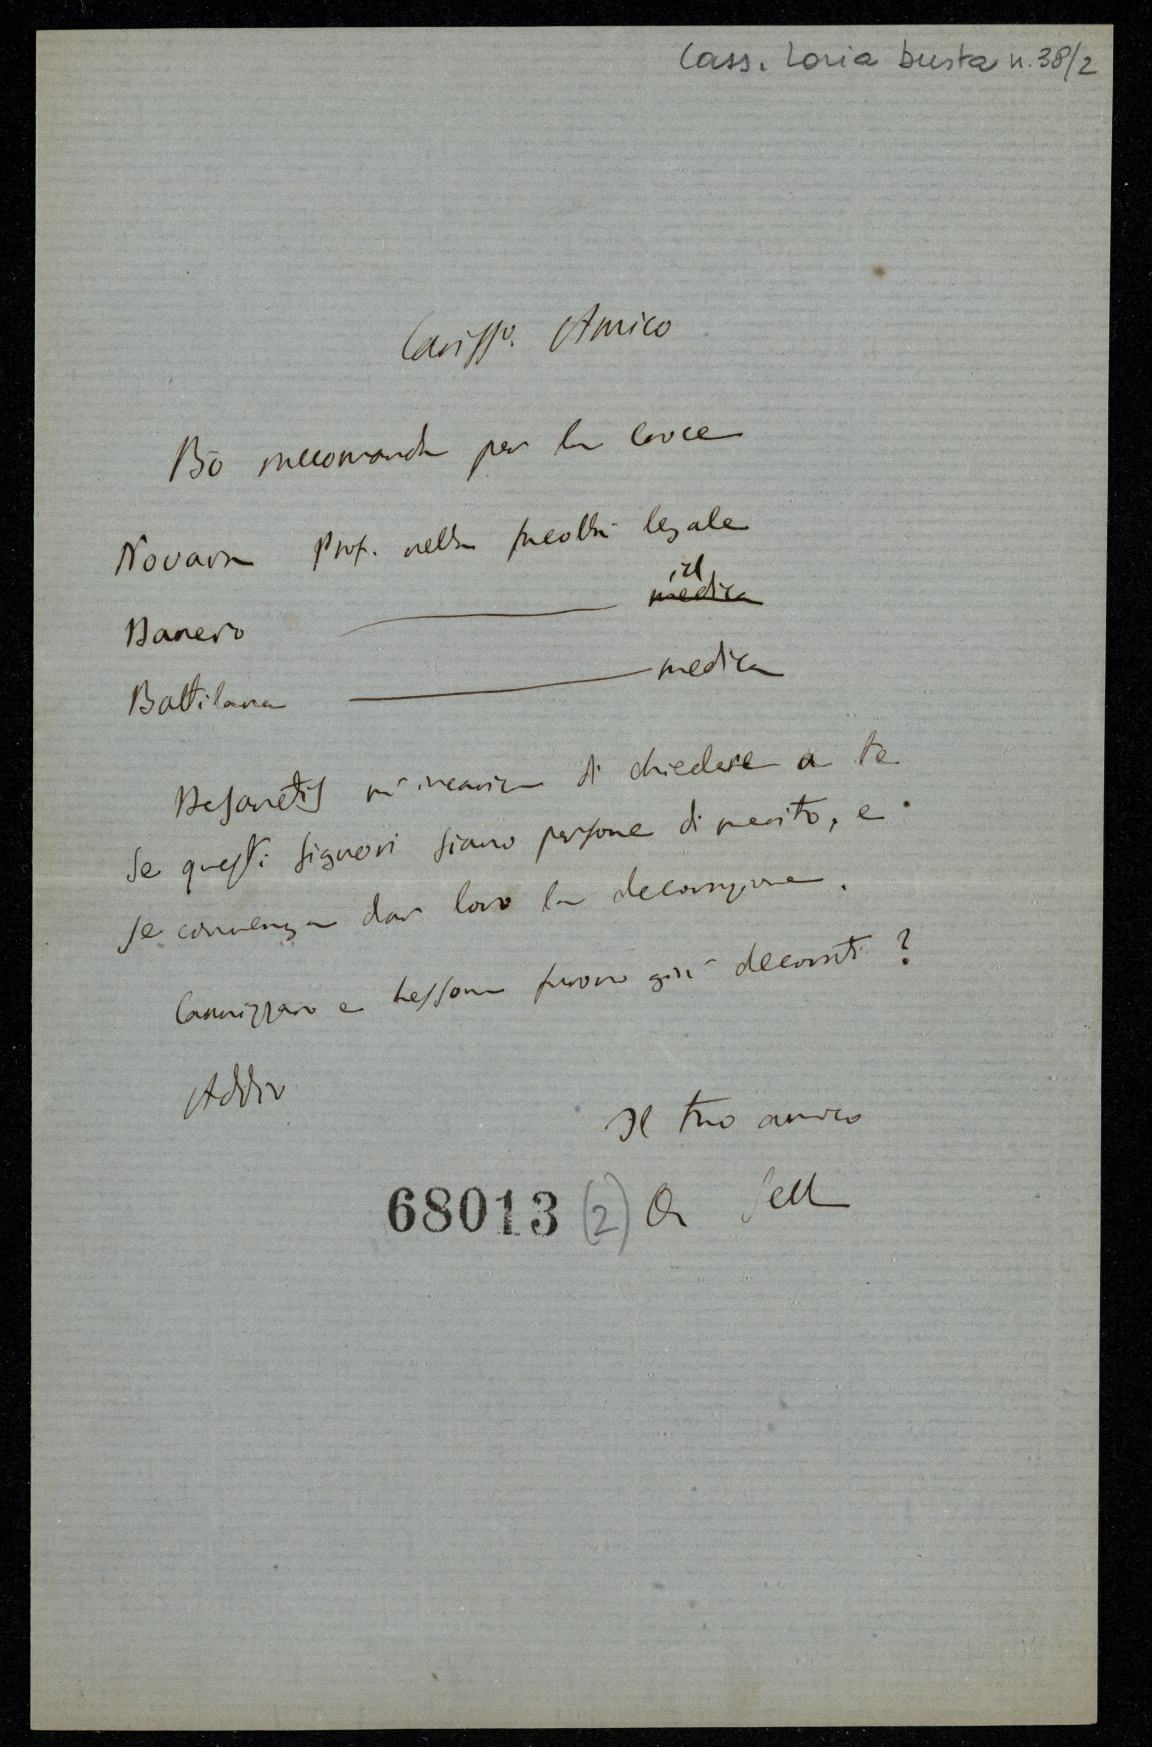 Cass. Loria busta n. 38/2
Cariss.º Amico
Bo raccomanda per la croce
Novara Prof. nella facoltà legale
id
Banero ——— medica
Battilana ——— medica
Desanctis m'incarica di chiedere a te
se questi signori siano persone di merito, e
se convenga dar loro la decorazione.
Cannizzaro e Lessona furono già decorati?
Addio
Il tuo amico
68013 (2) Q. Sella